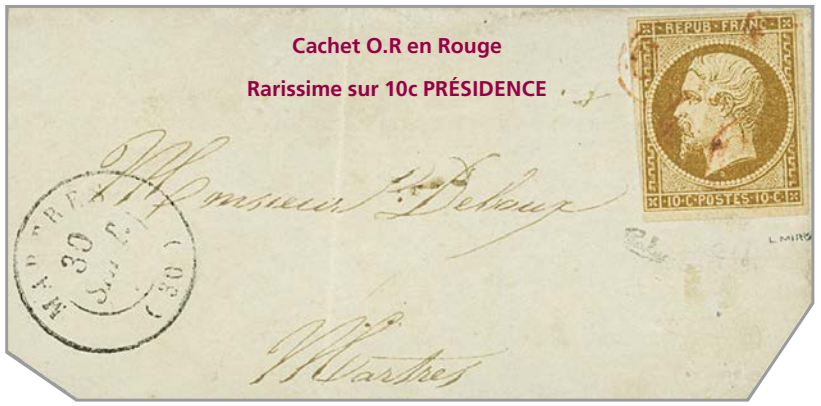 Cachet O.R en Rouge
Rarissime sur 10c PRÉSIDENCE
REPUB FRANC
10·C·POSTES·10·C
L. MIRO
Monsieur Debaux
Martres
30
(30)